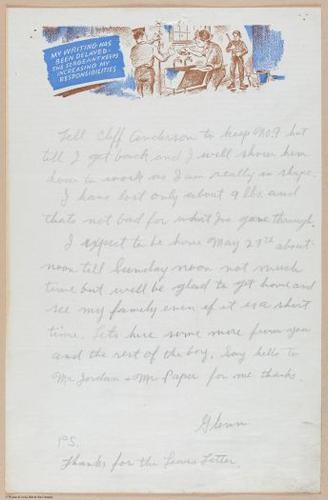 MY WRITING HAS
BEEN DELAYED-
THE SERGEANT KEEPS
INCREASING MY
RESPONSIBILITIES
Tell Cliff Anderson to keep No. 9 hot
till I get back and I will show him
how to work as I am really in shape.
I have lost only about 9 lbs and
thats not bad for what Ive gone through.
I expect to be home May 27th about
noon till Sunday noon not much
time but will be glad to get home and
see my family even if it is a short
time. Lets hear some more from you
and the rest of the boy. Say hello to
Mr Jordan + Mr Paper for me thanks.
Glenn
P.S.
Thanks for the Letter